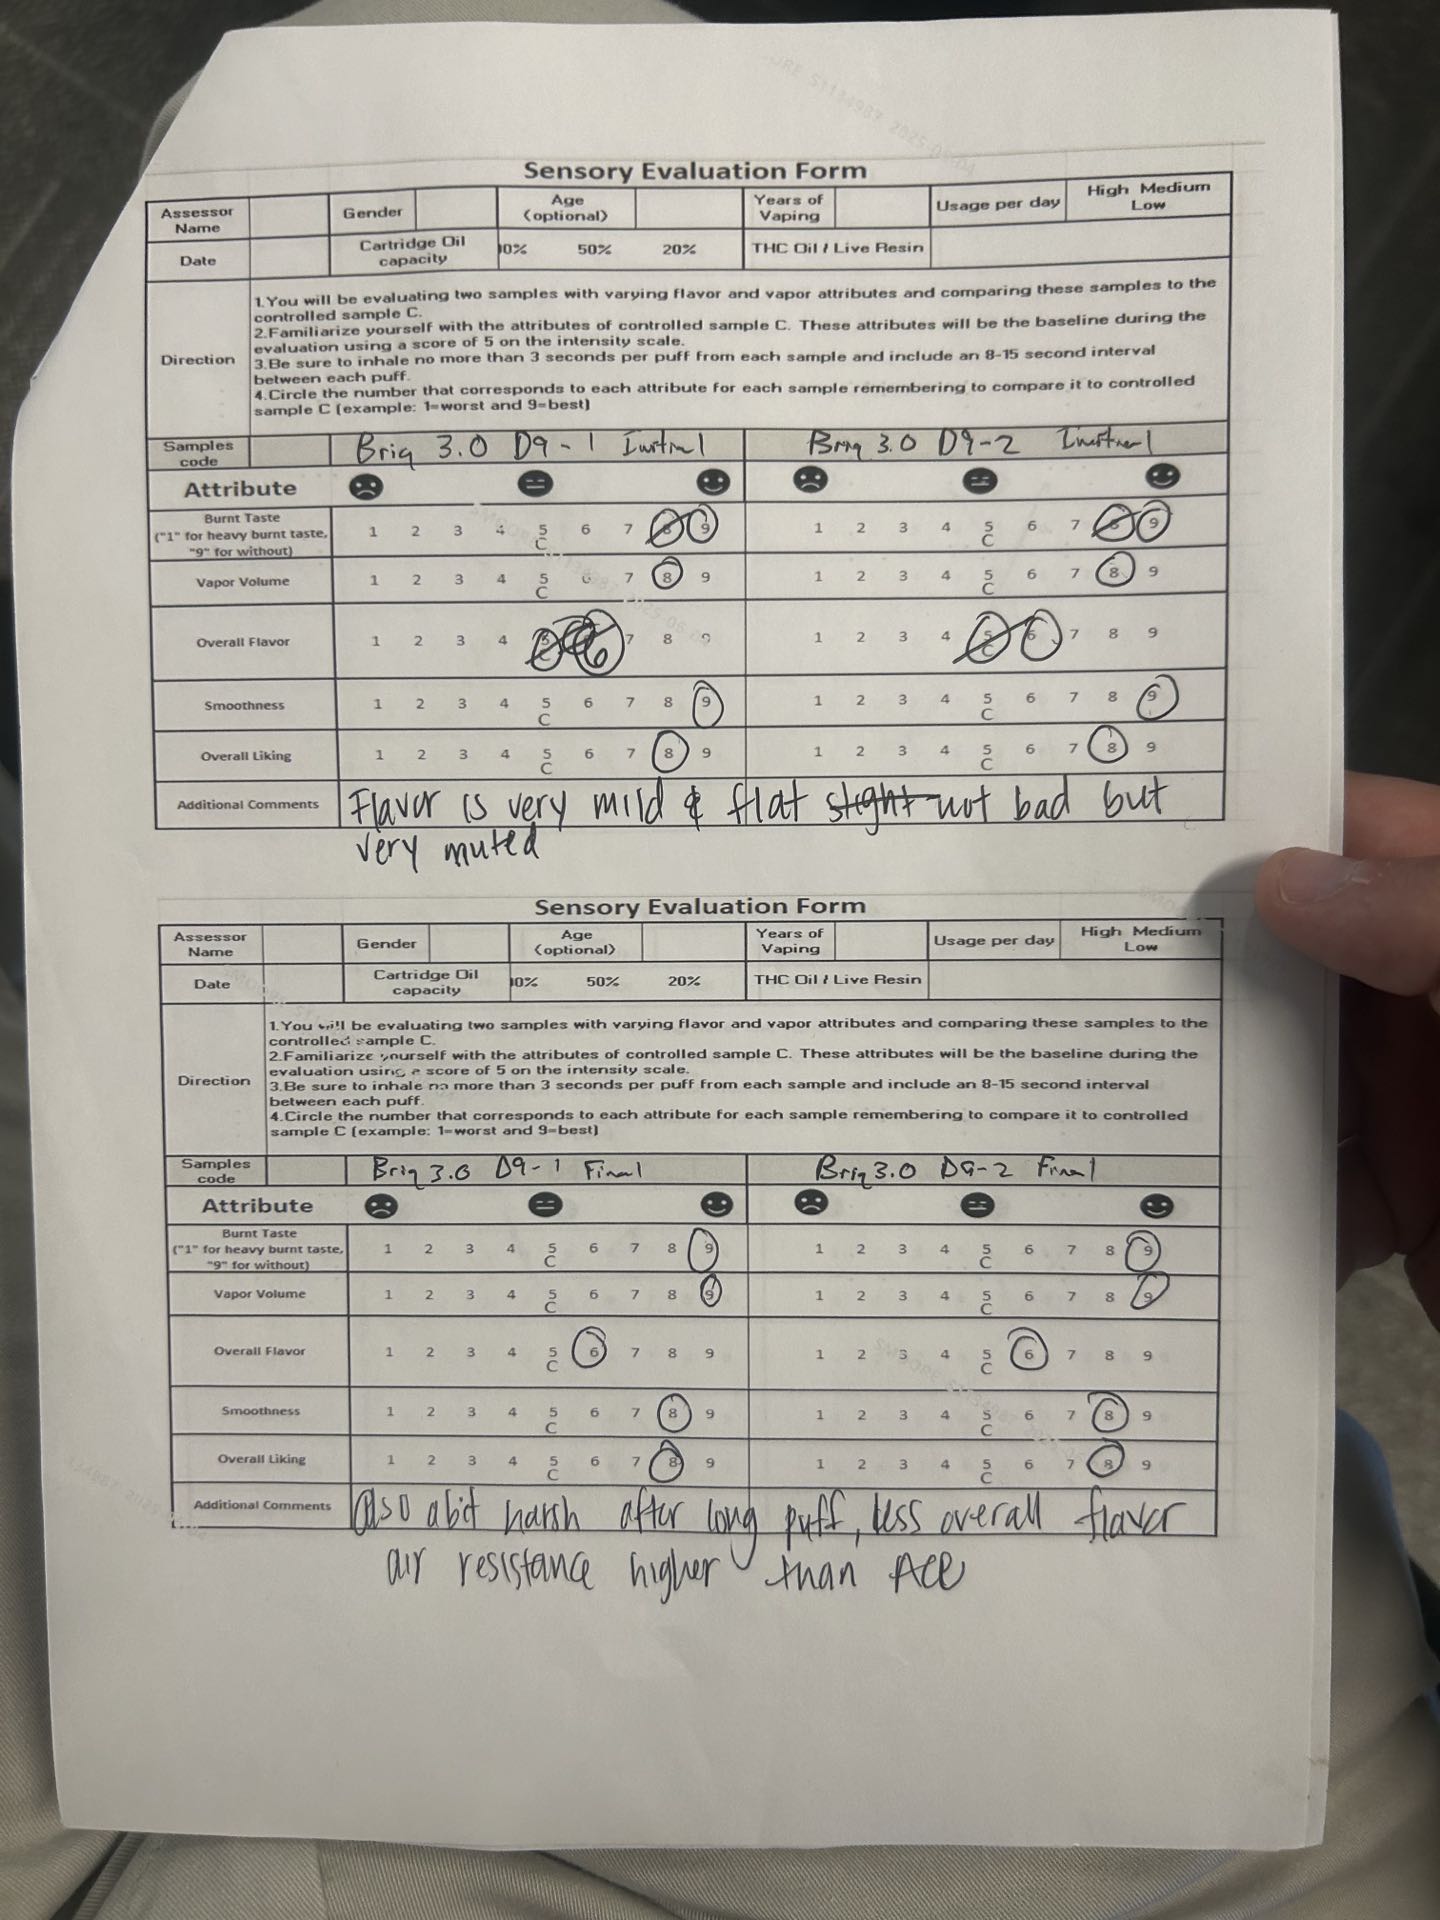 Sensory Evaluation Form
Assessor Name Gender Age (optional) Years of Vaping Usage per day High Medium Low
Date Cartridge Oil capacity 0% 50% 20% THC Oil / Live Resin
Direction
1.You will be evaluating two samples with varying flavor and vapor attributes and comparing these samples to the
controlled sample C.
2.Familiarize yourself with the attributes of controlled sample C. These attributes will be the baseline during the
evaluation using a score of 5 on the intensity scale.
3.Be sure to inhale no more than 3 seconds per puff from each sample and include an 8-15 second interval
between each puff.
4.Circle the number that corresponds to each attribute for each sample remembering to compare it to controlled
sample C (example: 1=worst and 9=best)
Samples code Briq 3.0 D9-1 Briq 3.0 D9-2
Attribute
Burnt Taste ("1" for heavy burnt taste, "9" for without) 1 2 3 4 5 C 6 7 8 9 1 2 3 4 5 C 6 7 8 9
Vapor Volume 1 2 3 4 5 C 6 7 8 9 1 2 3 4 5 C 6 7 8 9
Overall Flavor 1 2 3 4 5 C 6 7 8 9 1 2 3 4 5 C 6 7 8 9
Smoothness 1 2 3 4 5 C 6 7 8 9 1 2 3 4 5 C 6 7 8 9
Overall Liking 1 2 3 4 5 C 6 7 8 9 1 2 3 4 5 C 6 7 8 9
Additional Comments Flavor is very mild & flat slight not bad but
very muted
Sensory Evaluation Form
Assessor Name Gender Age (optional) Years of Vaping Usage per day High Medium Low
Date Cartridge Oil capacity 0% 50% 20% THC Oil / Live Resin
Direction
1.You will be evaluating two samples with varying flavor and vapor attributes and comparing these samples to the
controlled sample C.
2.Familiarize yourself with the attributes of controlled sample C. These attributes will be the baseline during the
evaluation using a score of 5 on the intensity scale.
3.Be sure to inhale no more than 3 seconds per puff from each sample and include an 8-15 second interval
between each puff.
4.Circle the number that corresponds to each attribute for each sample remembering to compare it to controlled
sample C (example: 1=worst and 9=best)
Samples code Briq 3.0 D9-1 Final Briq 3.0 D9-2 Final
Attribute
Burnt Taste ("1" for heavy burnt taste, "9" for without) 1 2 3 4 5 C 6 7 8 9 1 2 3 4 5 C 6 7 8 9
Vapor Volume 1 2 3 4 5 C 6 7 8 9 1 2 3 4 5 C 6 7 8 9
Overall Flavor 1 2 3 4 5 C 6 7 8 9 1 2 3 4 5 C 6 7 8 9
Smoothness 1 2 3 4 5 C 6 7 8 9 1 2 3 4 5 C 6 7 8 9
Overall Liking 1 2 3 4 5 C 6 7 8 9 1 2 3 4 5 C 6 7 8 9
Additional Comments Also a bit harsh after long puff, less overall flavor
air resistance higher than ACE